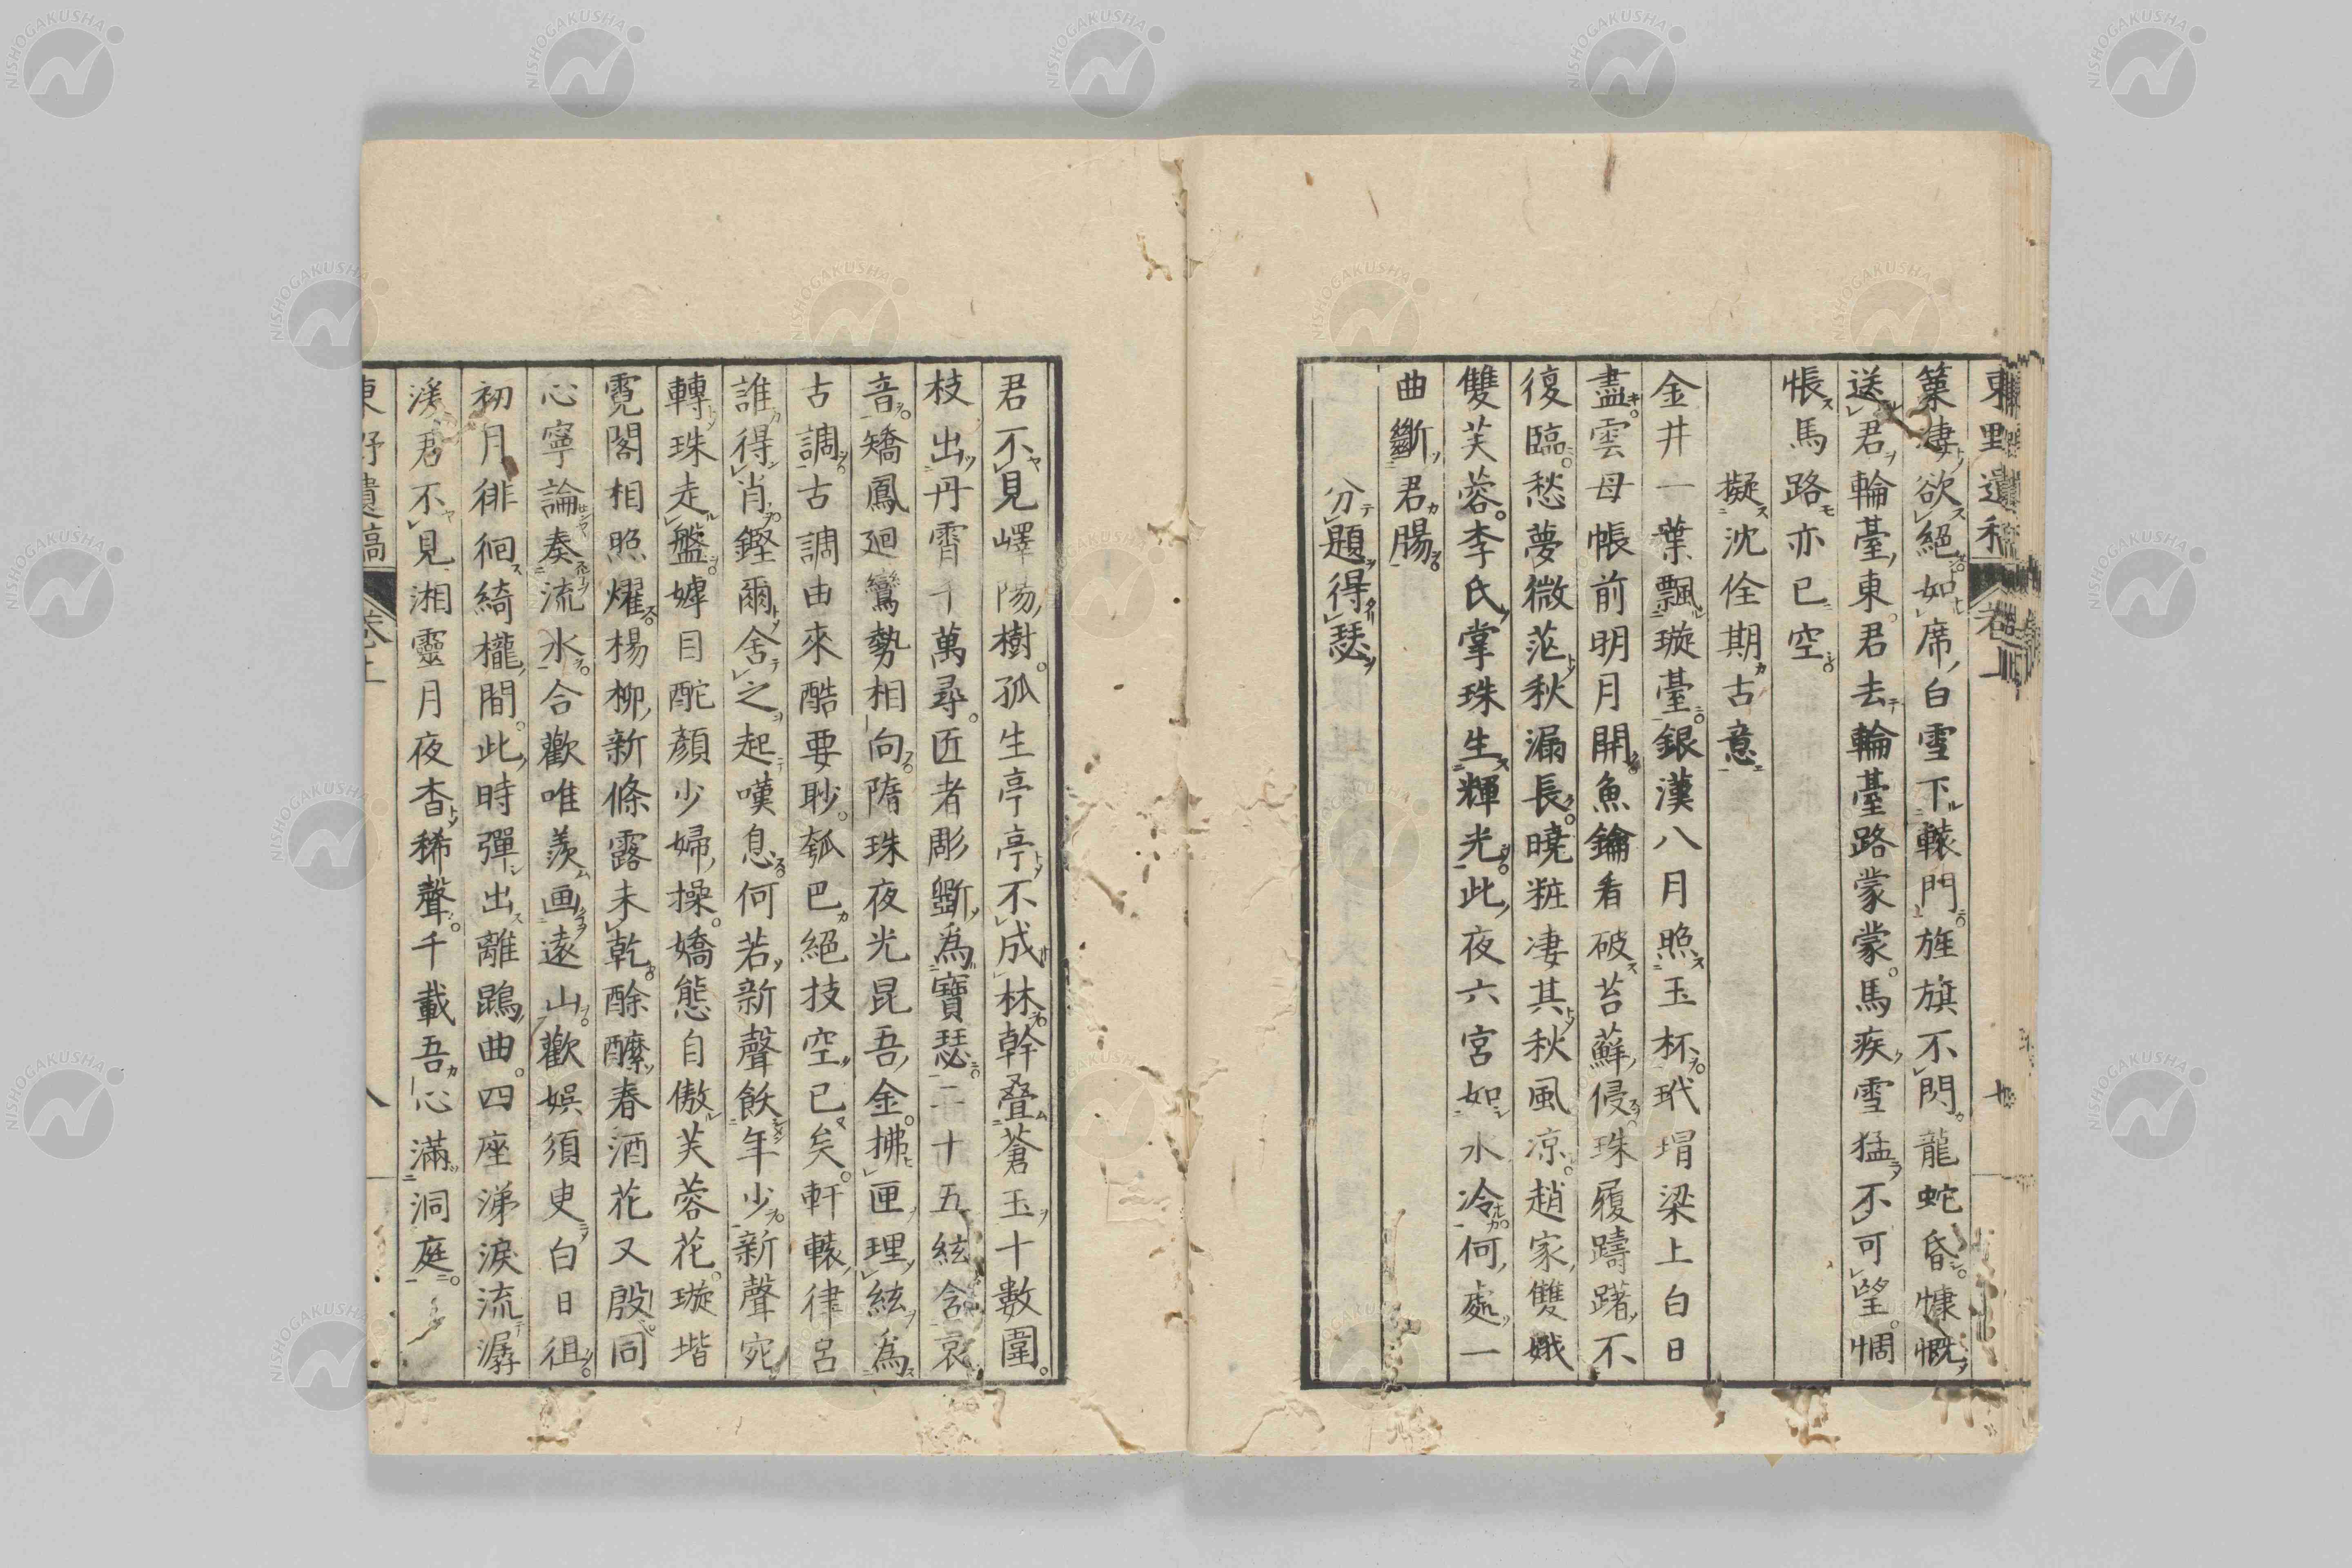 東野遺稿 卷上 七
篥凄欲絕如席白雪下轅門旌旗不閃龍蛇昏慷慨
送君輪臺東君去輪臺路蒙蒙馬疾雪猛不可望惆
悵馬路亦已空
擬沈佺期古意
金井一葉飄璇臺銀漢八月照玉杯玳瑁梁上白日
盡雲母帳前明月開魚鑰看破苔蘚侵珠履躊躇不
復臨愁夢微茫秋漏長曉粧凄其秋風凉趙家雙娥
雙芙蓉李氏掌珠生輝光此夜六宮如水冷何處一
曲斷君腸
分題得瑟
君不見嶧陽樹孤生亭亭不成林幹叠蒼玉十數圍
枝出丹霄千萬尋匠者彫斵為寶瑟二十五絃含哀
音矯鳳廻鸞勢相向隋珠夜光昆吾金拂匣理絃為
古調古調由來酷要眇瓠巴絕技空已矣軒轅律呂
誰得肖鏗爾舍之起嘆息何若新聲飫年少新聲宛
轉珠走盤嫭目酡顏少婦操嬌態自傲芙蓉花璇堦
霓閣相照燿楊柳新條露未乾酴醾春酒花又殷同
心寧論奏流水合歡唯羨画遠山歡娛須臾白日徂
初月徘徊綺櫳間此時彈出離鵾曲四座涕淚流潺
湲君不見湘靈月夜杳稀聲千載吾心滿洞庭
東野遺稿 卷上 八
NISHOGAKUSHA